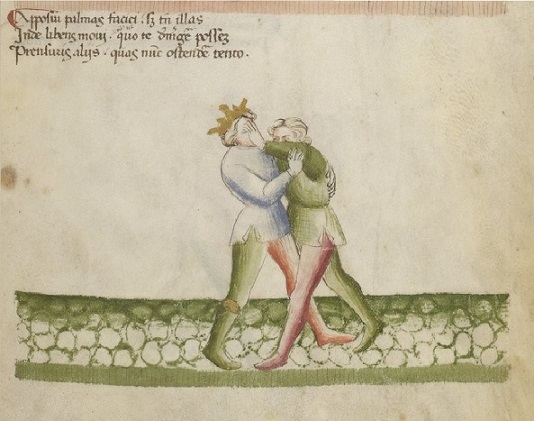 Apposui palmas faciei . sꝫ tn̄ illas
Inde libens moui . quo te possez
Prensuris alijs . quas nūc ostendē tento .